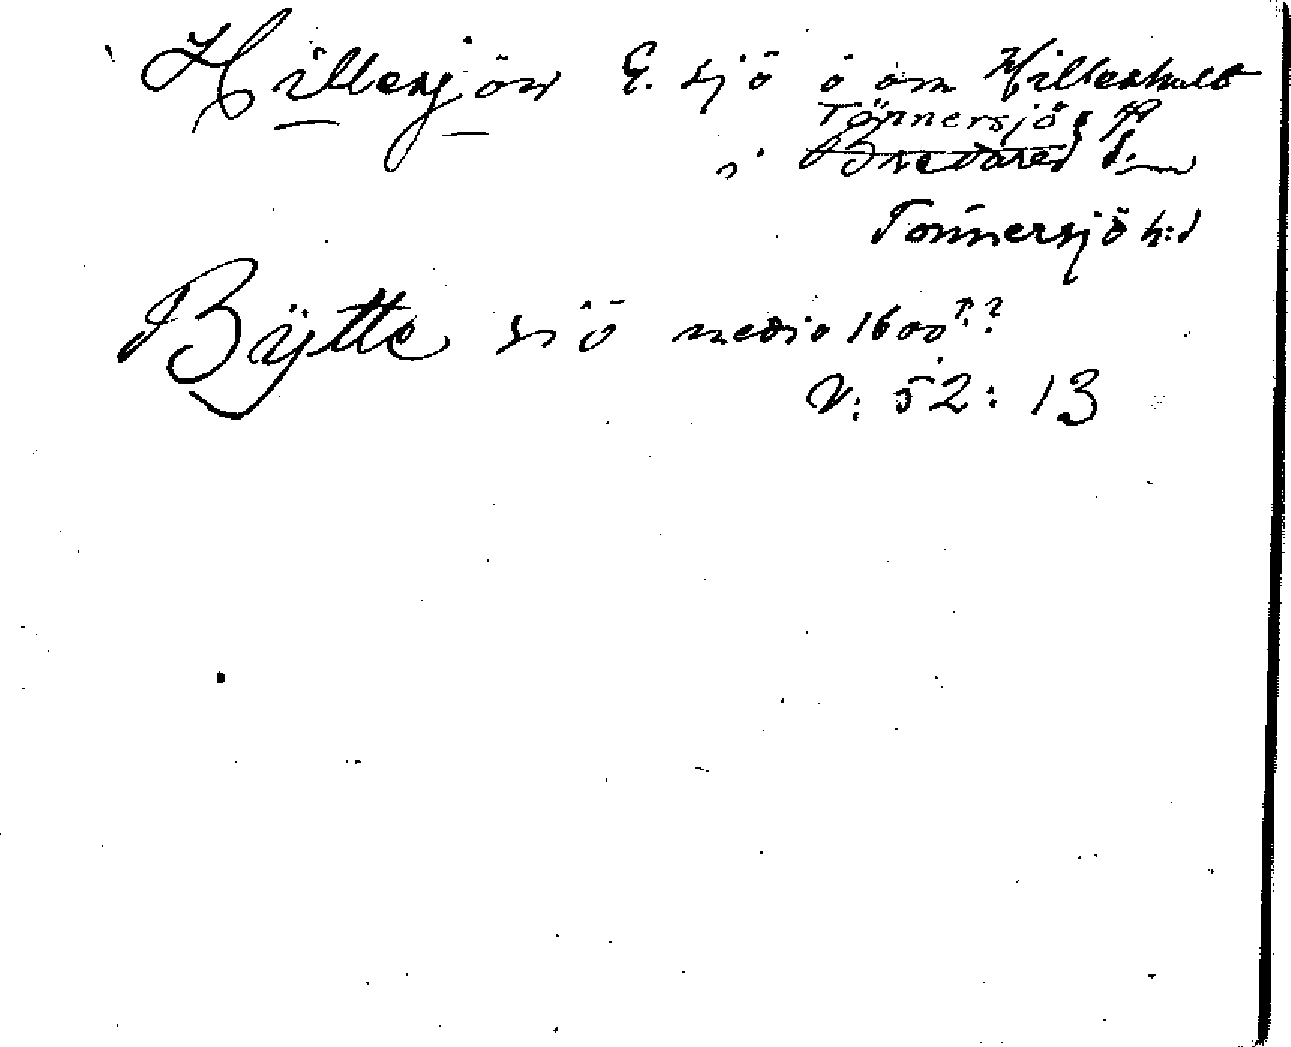 Hillesjön G. sjö ö om Hilleshult
Tönnersjö s
i Bredared s.
Tönnersjö h:d
Bÿtte siö medio 1600??
V: 52: 13